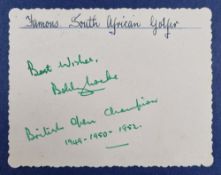 Famous South African Golfer
Best Wishes,
Bobby Locke
British Open Champion
1949-1950-1952.